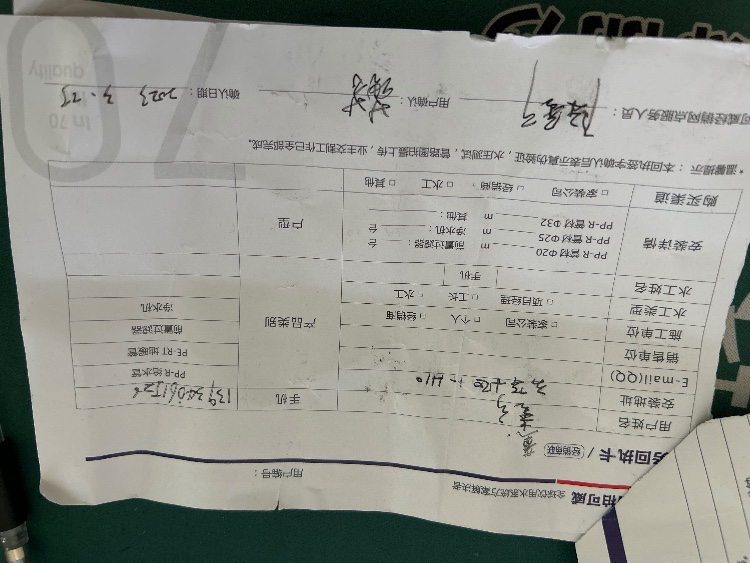 柏可威 全球饮用水系统方案解决者
用户编号：
务回执卡 / 经销商联
用户姓名
手机 13934061526
安装地址
E-mail(QQ)
销售单位
施工单位 □ 家装公司 □ 个人 □ 经销商
水工类型 □ 项目经理 □ 工长 □ 水工
水工姓名 手机
产品类别
PP-R 给水管
PE-RT 地暖管
前置过滤器
净水机
安装详情
PP-R 管材 Φ20 m 前置过滤器： 台
PP-R 管材 Φ25 m 净水机： 台
PP-R 管材 Φ32 m 其他：
户型
购买渠道 □ 家装公司 □ 经销商 □ 水工 □ 其他
* 温馨提示：本回执签字确认后表示真伪验证，水压测试，管路图拍摄上传，业主交割工作已全部完成。
可威经销网点服务人员： 用户确认： 确认日期： 2023 3.25
quality
In 70
70